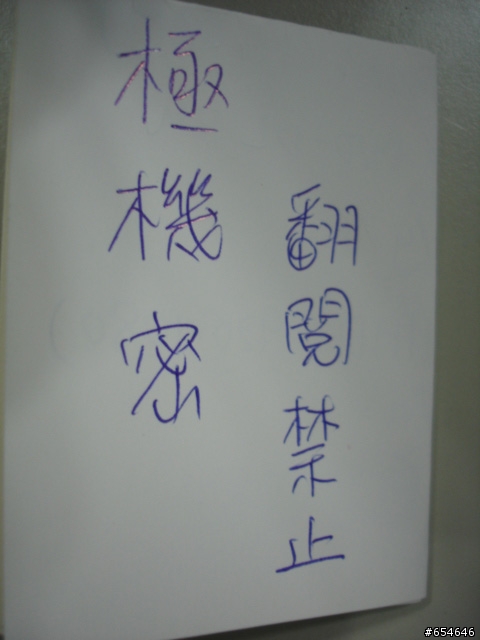 極機密
翻閱禁止
#654646